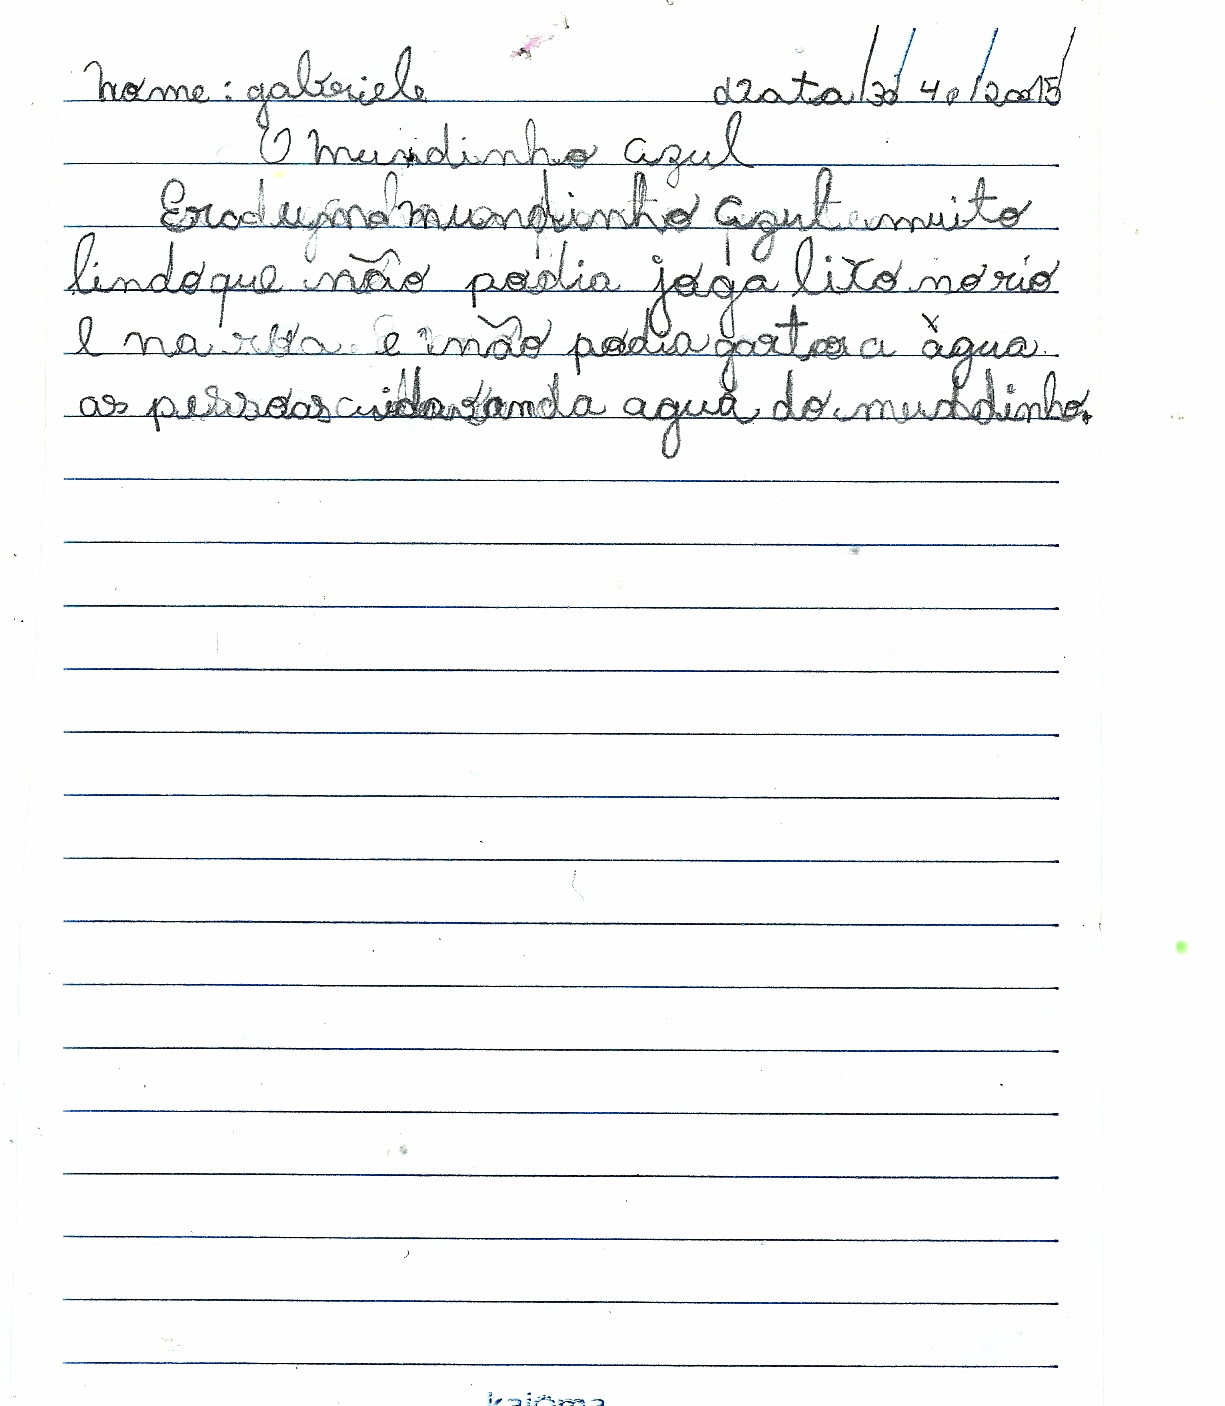 nome: gabriele data/30/40/2015
O mundinho azul
Era um mundinho azul e muito
lindo que não podia joga lixo no rio
e na rua e não podia gastar a água
as pessoas cuidavam da agua do mundinho.
kajoma